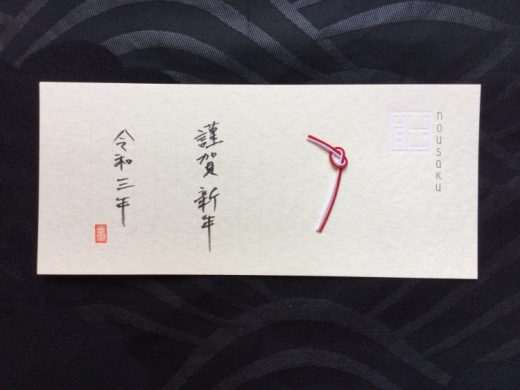 nousaku
謹賀新年
令和三年